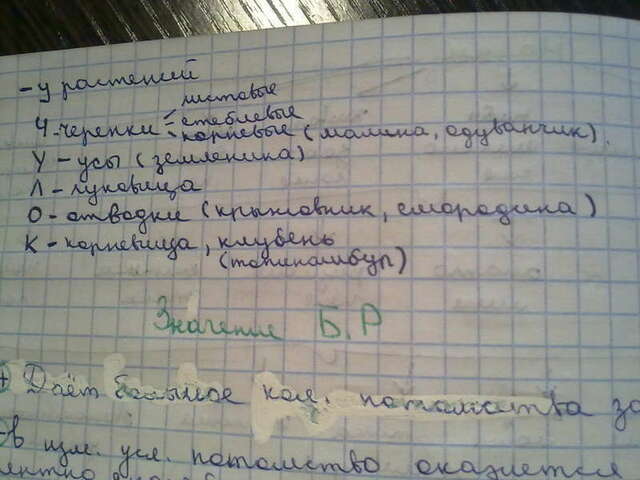 - у растений
листовые
Ч-черенки - стеблевые
корневые (малина, одуванчик).
У - усы (земленика)
Л - луковица
О - отводки (крыжовник, смородина)
К - корневища, клубень
(топинамбур)
Значение Б.Р
+ Даёт большое кол. потомства за
-В изм. усл. потомство окажется